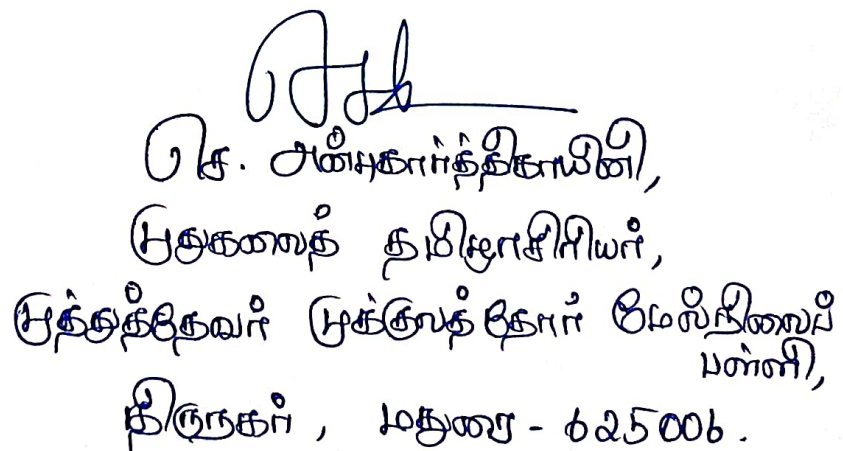 செ. அன்புகார்த்திகாயினி,
முதுகலைத் தமிழாசிரியர்,
முத்துத்தேவர் முக்குலத்தோர் மேல்நிலைப்
பள்ளி,
திருநகர், மதுரை - 625006.